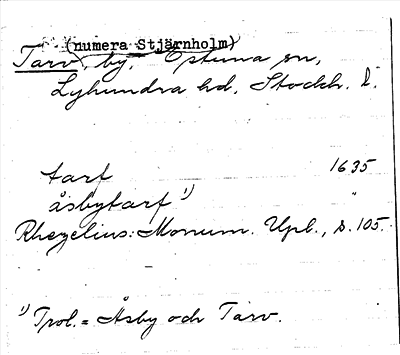 (numera Stjärnholm)
Tarv, by, Estuna sn,
Lyhundra hd, Stockh. l.
tarf 1635
åsbytarf ¹) "
Rhezelius: Monum. Upl., s. 105.
¹) Trol. = Åsby och Tarv.